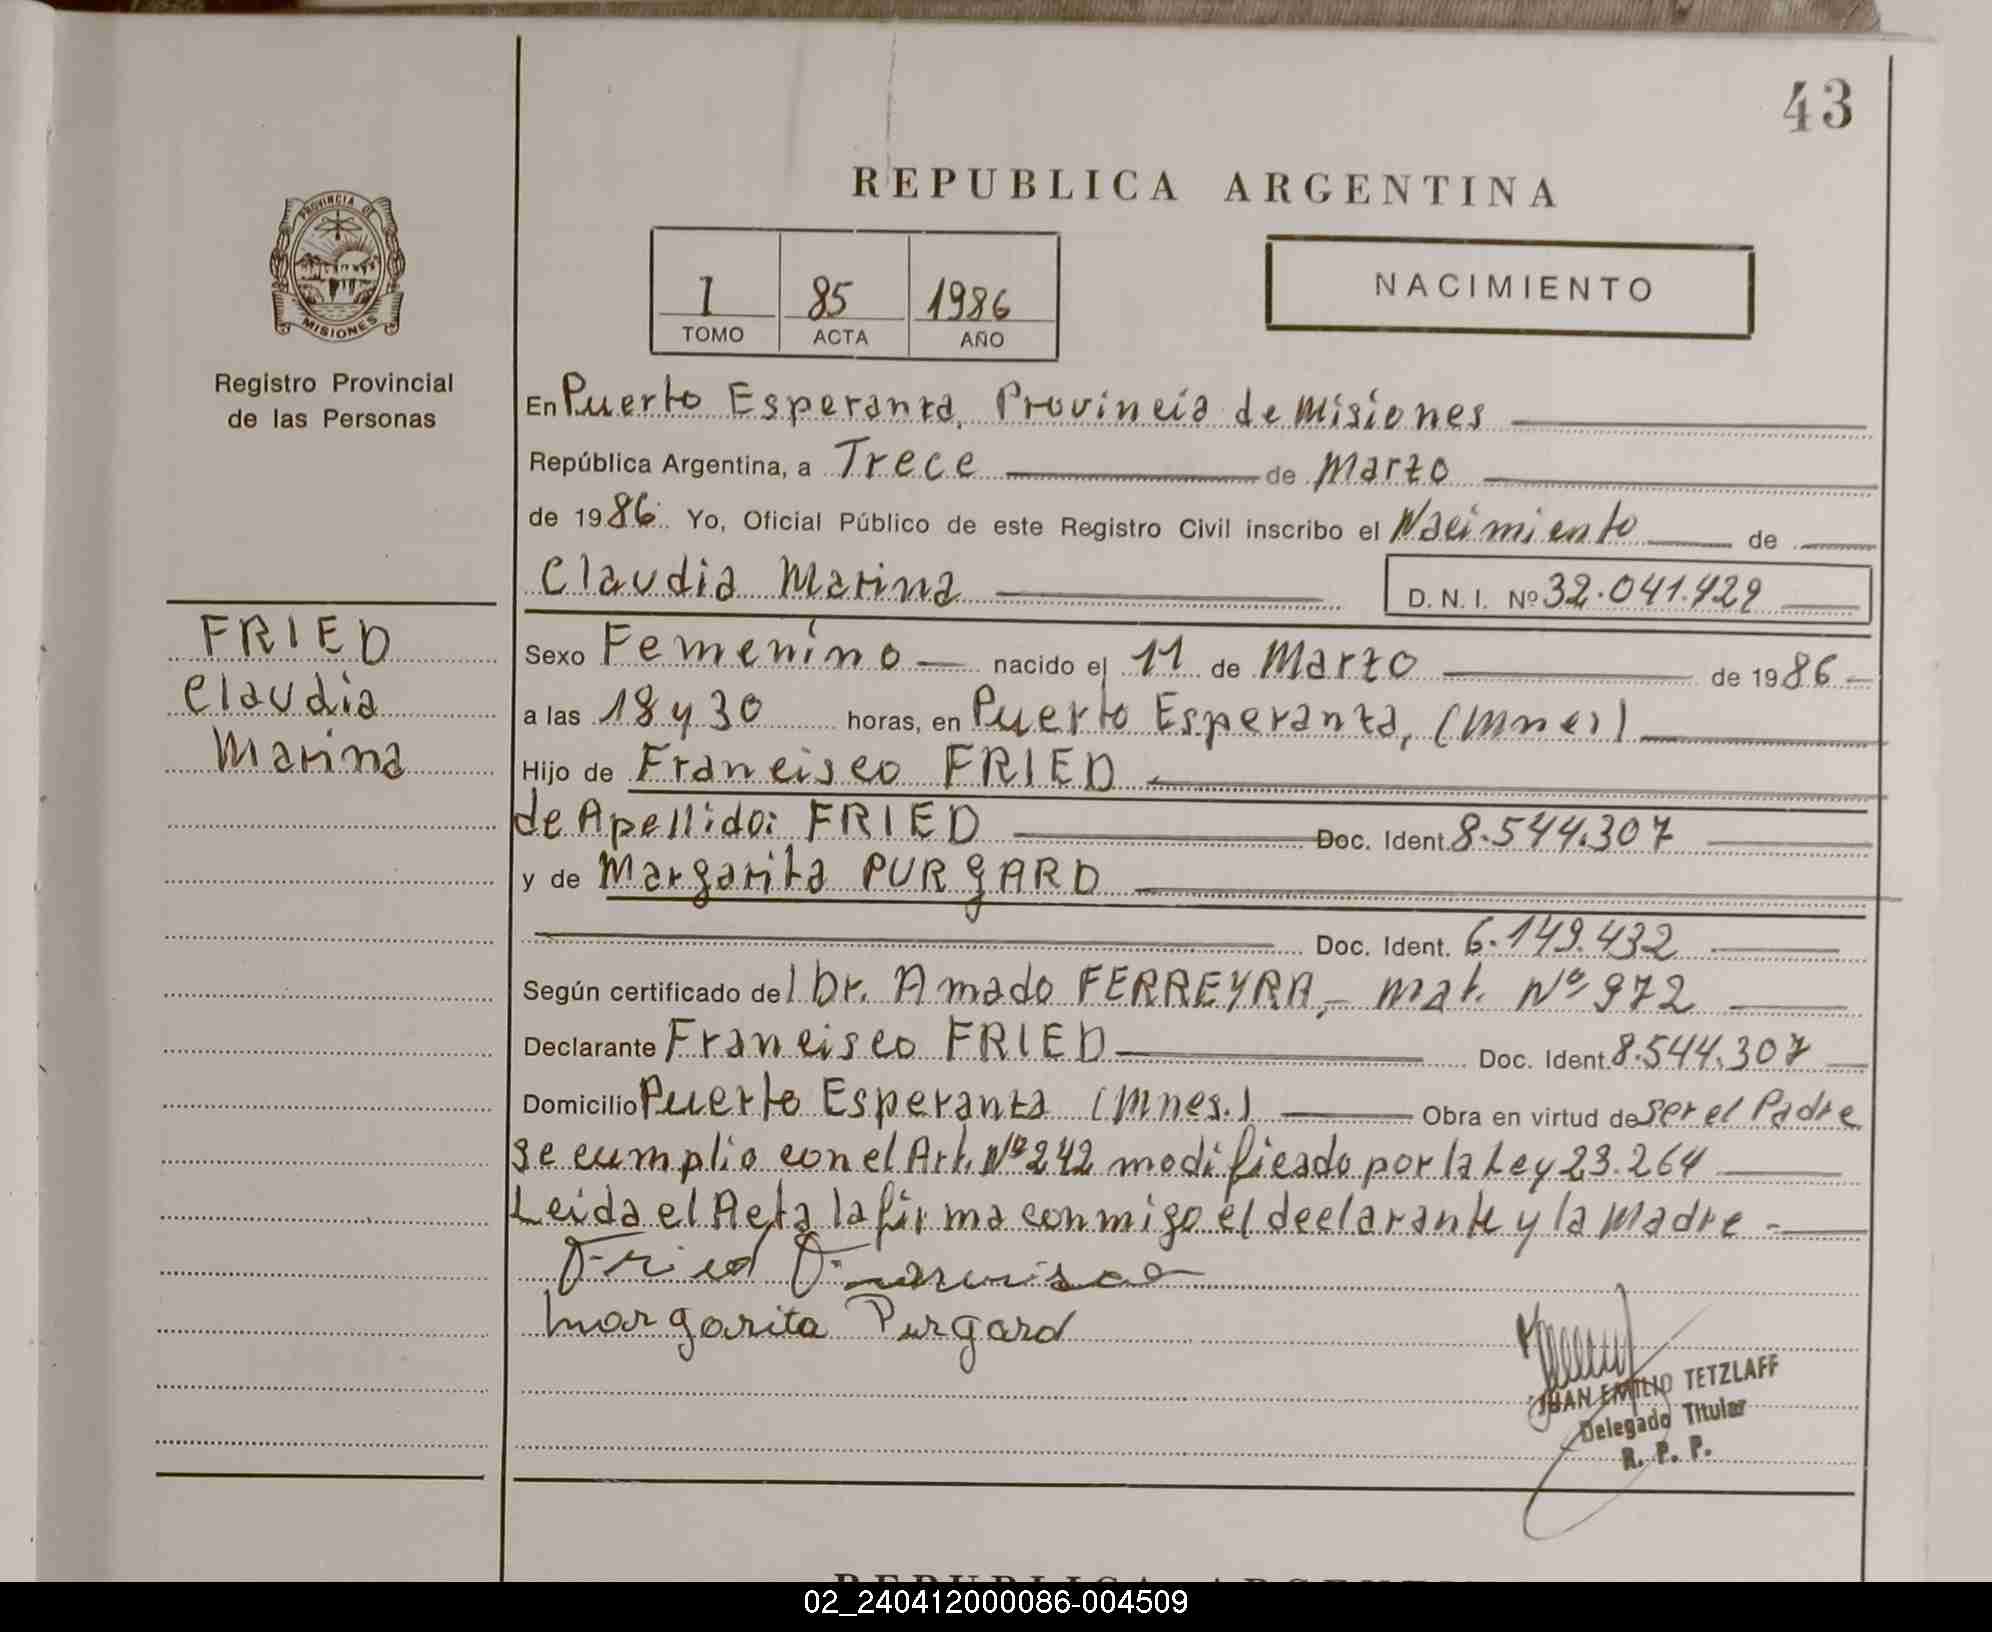 43
REPUBLICA ARGENTINA
PROVINCIA DE
MISIONES
1 85 1986
TOMO ACTA AÑO
NACIMIENTO
Registro Provincial
de las Personas
En Puerto Esperanza, Provincia de Misiones
República Argentina, a Trece de Marzo
de 1986. Yo, Oficial Público de este Registro Civil inscribo el Nacimiento de
Claudia Marina D. N. I. Nº 32.041.429
FRIED
Claudia
Marina
Sexo Femenino nacido el 11 de Marzo de 1986
a las 18 y 30 horas, en Puerto Esperanza, (Mnes)
Hijo de Francisco FRIED
de Apellido: FRIED Doc. Ident. 8.544.307
y de Margarita PURGARD
Doc. Ident. 6.149.432
Según certificado del Dr. Amado FERREYRA, - Mat. Nº 972
Declarante Francisco FRIED Doc. Ident. 8.544.307
Domicilio Puerto Esperanza (Mnes.) Obra en virtud de ser el Padre
Se cumplio con el Art. Nº 242 modificado por la Ley 23.264
Leida el Acta la firma conmigo el declarante y la Madre -
Fried Francisco
Margarita Purgard
JUAN EMILIO TETZLAFF
Delegado Titular
R. P. P.
REPUBLICA ARGENTINA
02_240412000086-004509